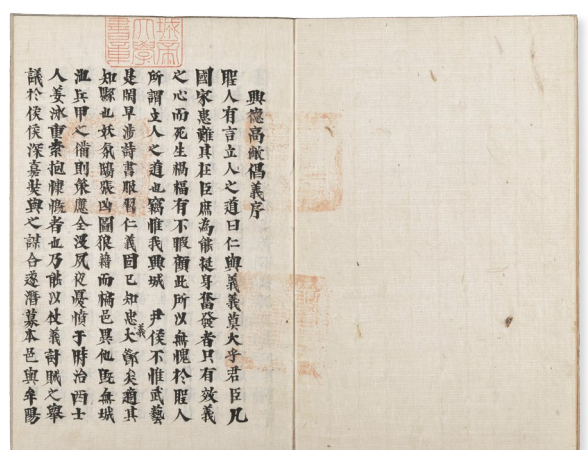 興德高敞倡義序
聖人有言立人之道曰仁與義義莫大乎君臣凡
國家患難其在臣庶為能挺身奮發者只有效義
之心而死生禍福有不暇顧此所以無愧於聖人
所謂立人之道也竊惟我興城 尹侯不惟武藝
是閑早涉詩書服習仁義固已知忠大節矣適其
義
知縣也妖氛鴟張凶圖狼藉而橘邑異他既無城
池兵甲之備則策應全漫夙夜憂憤于時治西士
人姜泳重素抱慷慨者也乃能以仗義討賊之擧
議於侯侯深嘉奘與之謀合遂潛募本邑與牟陽